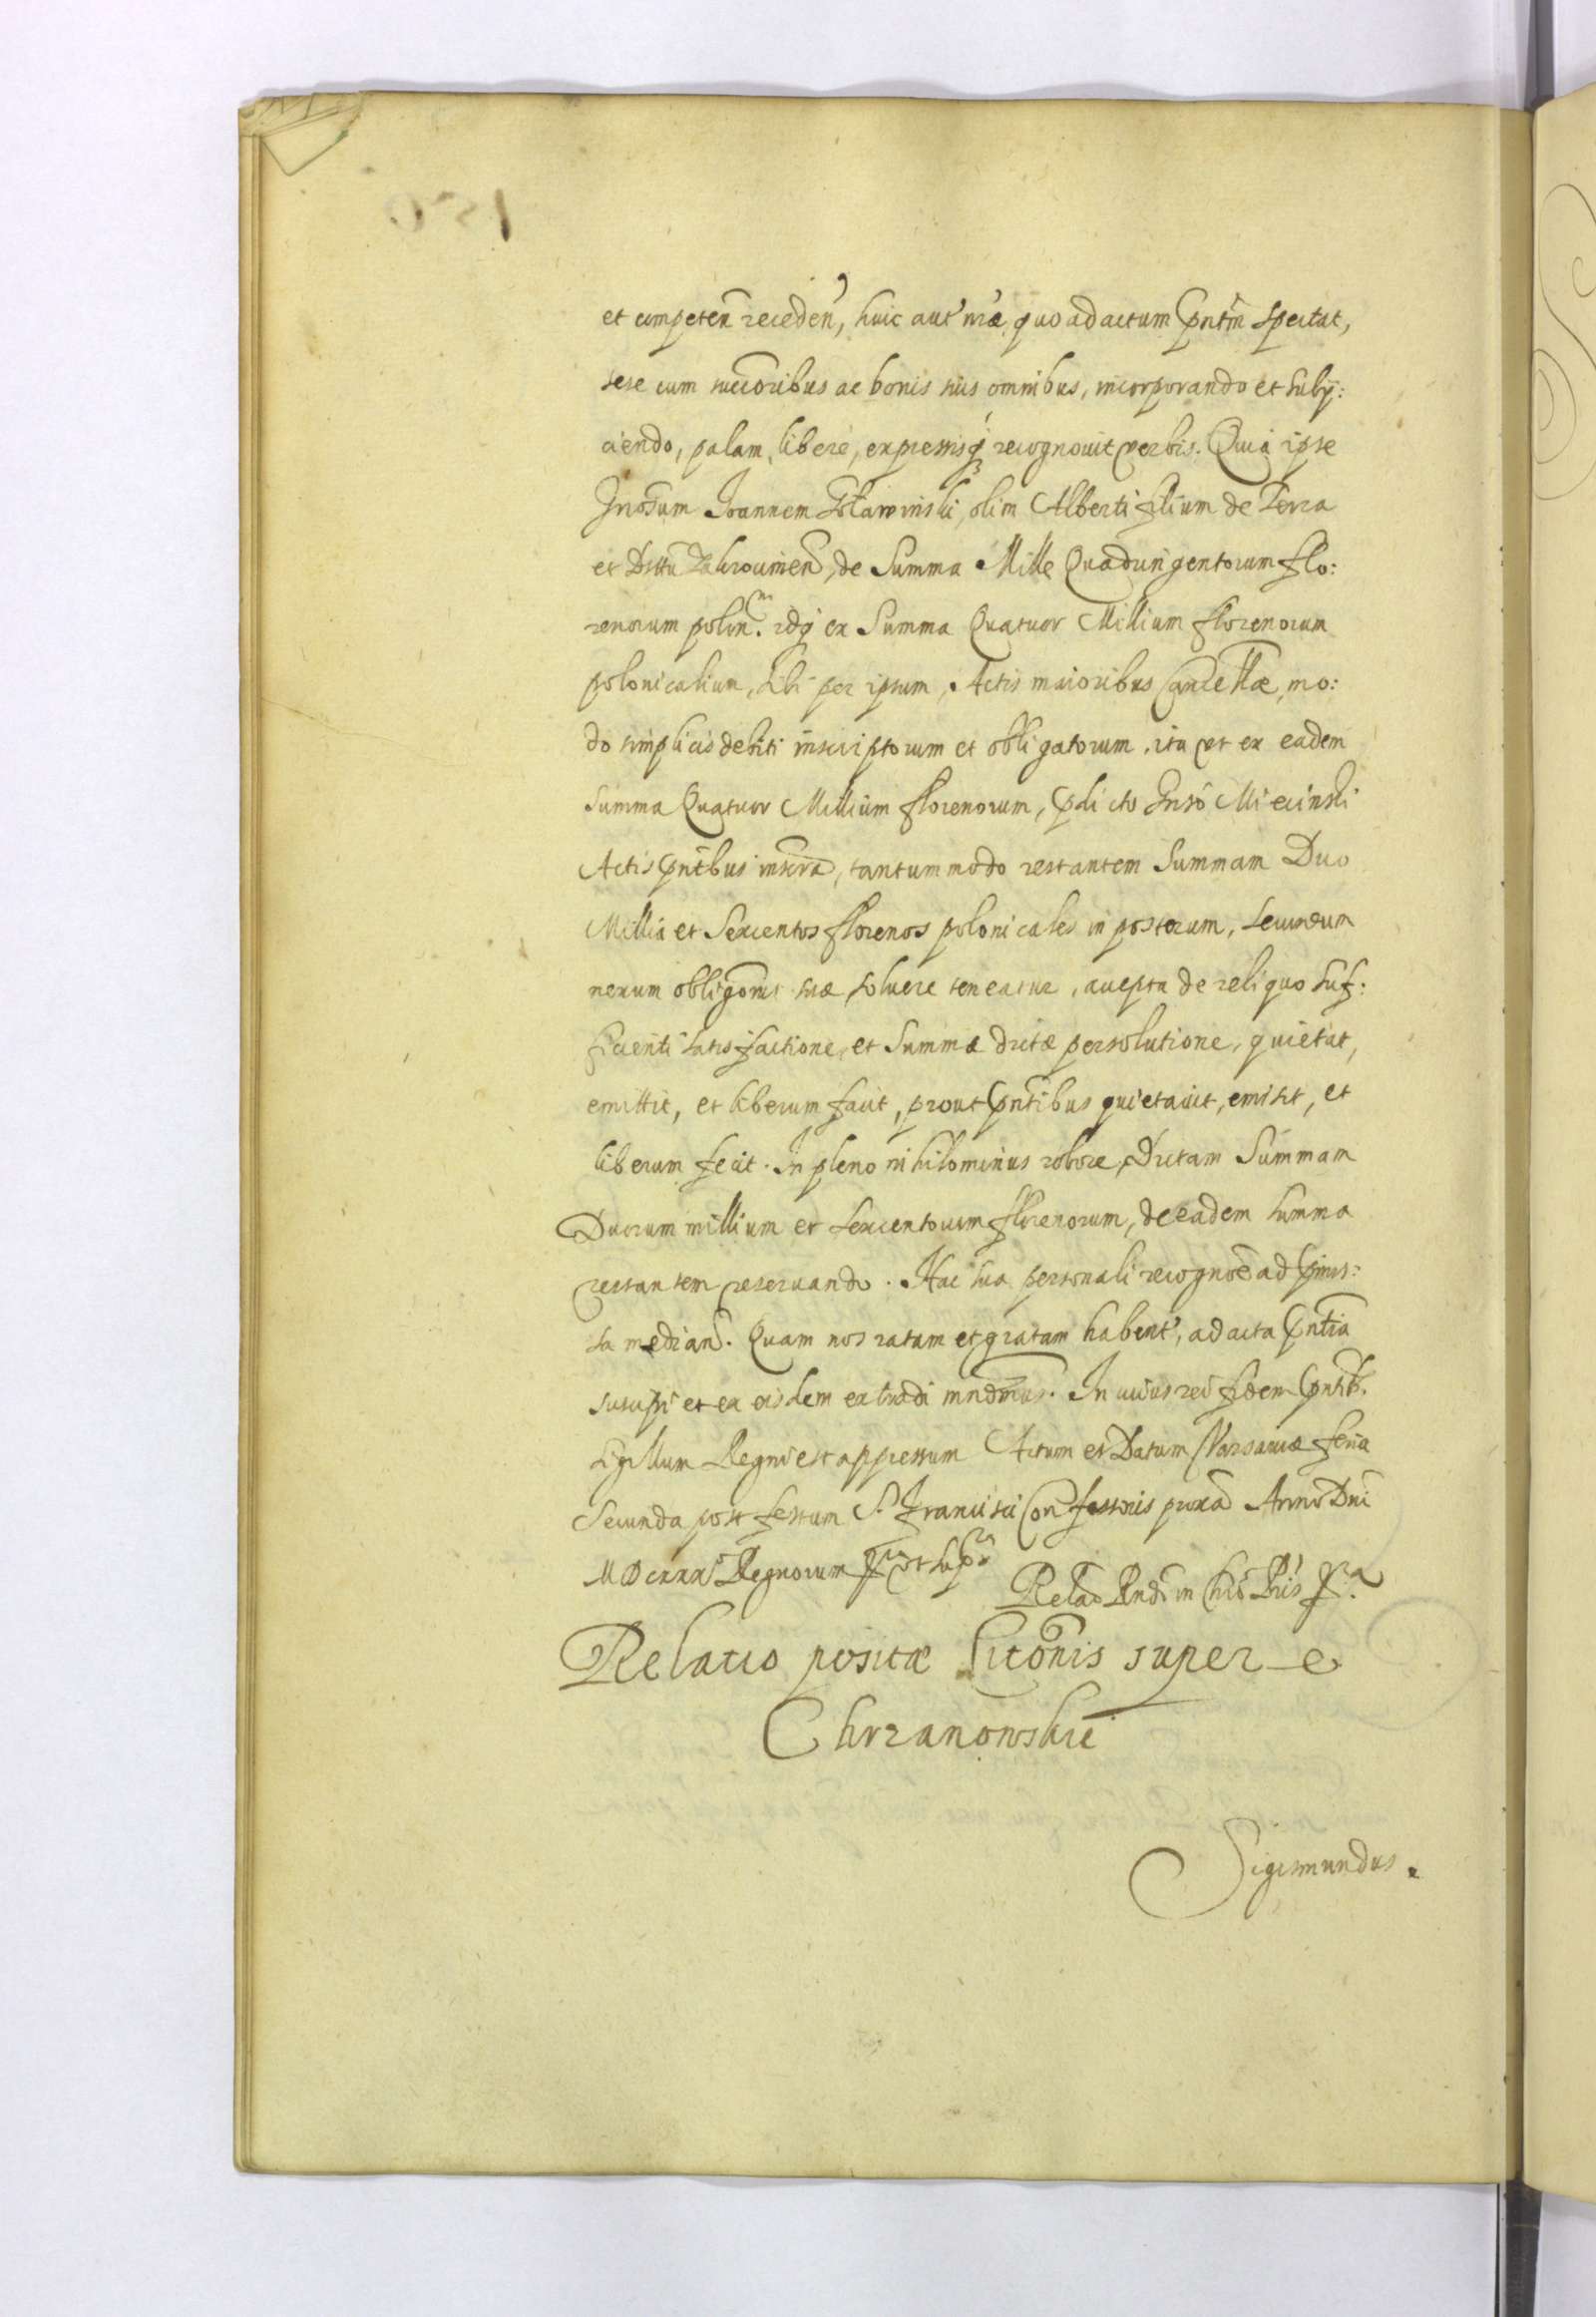 et competeñ recedeñ, huic aut' nræ, quo ad actum pñtm spectat,
sese cum succoribus ac bonis suis omnibus, incorporando et suby:
ciendo, palam, libere, expressisq; recognouit verbis. Quia ipse
Gnosum Joannem Goławinski, olim Alberti filium de Terra
et Dittu Zakrocimeñ, de Summa Mille Quadringentorum flo:
renorum polon. idq; ex Summa Quatuor Millium florenorum
polonicalium, sibi per ipsum, Actis maioribus Cancellæ, mo:
do simplicis debiti inscriptorum et obligatorum, ita vt ex eadem
Summa Quatuor Millium florenorum, pdicto Gnso Miecinski
Actis pñtibus inscra, tantummodo restantem Summam Duo
Millia et Sexcentos florenos polonicales in posterum, secundum
nexum obligonis suæ soluere teneatur, accepta de reliquo suf:
ficienti satisfactione, et Summæ dictæ persolutione, quietat,
emittit, et liberum facit, prout pñtibus quietauit, emisit, et
liberum fecit. In pleno nihilominus robore, Dictam Summam
Duorum millium et sexcentorum florenorum, de eadem summa
restantem reseruando. Hac sua personali recognoe ad pmis:
sa median. Quam nos ratam et gratam habent', ad acta pñtia
suscipi et ex eisdem extradi mndmus. In cuius rei fidem pntib.
sigillum Regni est appressum Actum et Datum Varsauiæ feria
Secunda post festum S. Francisci Confessoris proxa Anno Dni
MDCXXX Regnorum ut supra
Relao Rndi in Chro Pris
Relatio positæ Litonis super e
Chrzanowskie
Sigismundus.